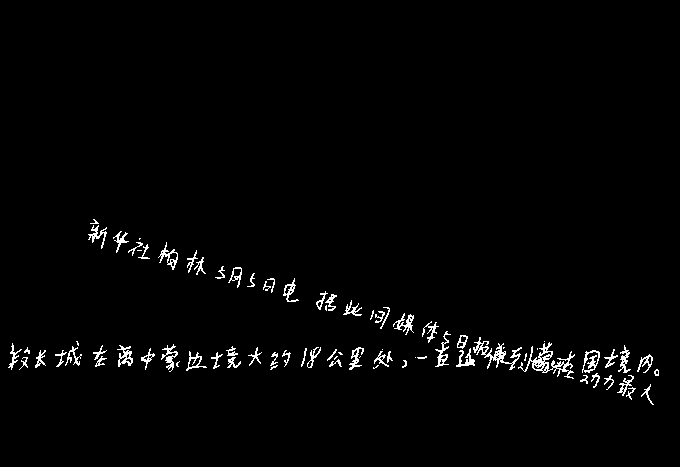 新华社柏林5月5日电 据此间媒体5日报 动力最大
段长城在离中蒙边境大约18公里处,一直延伸到蒙古国境内。